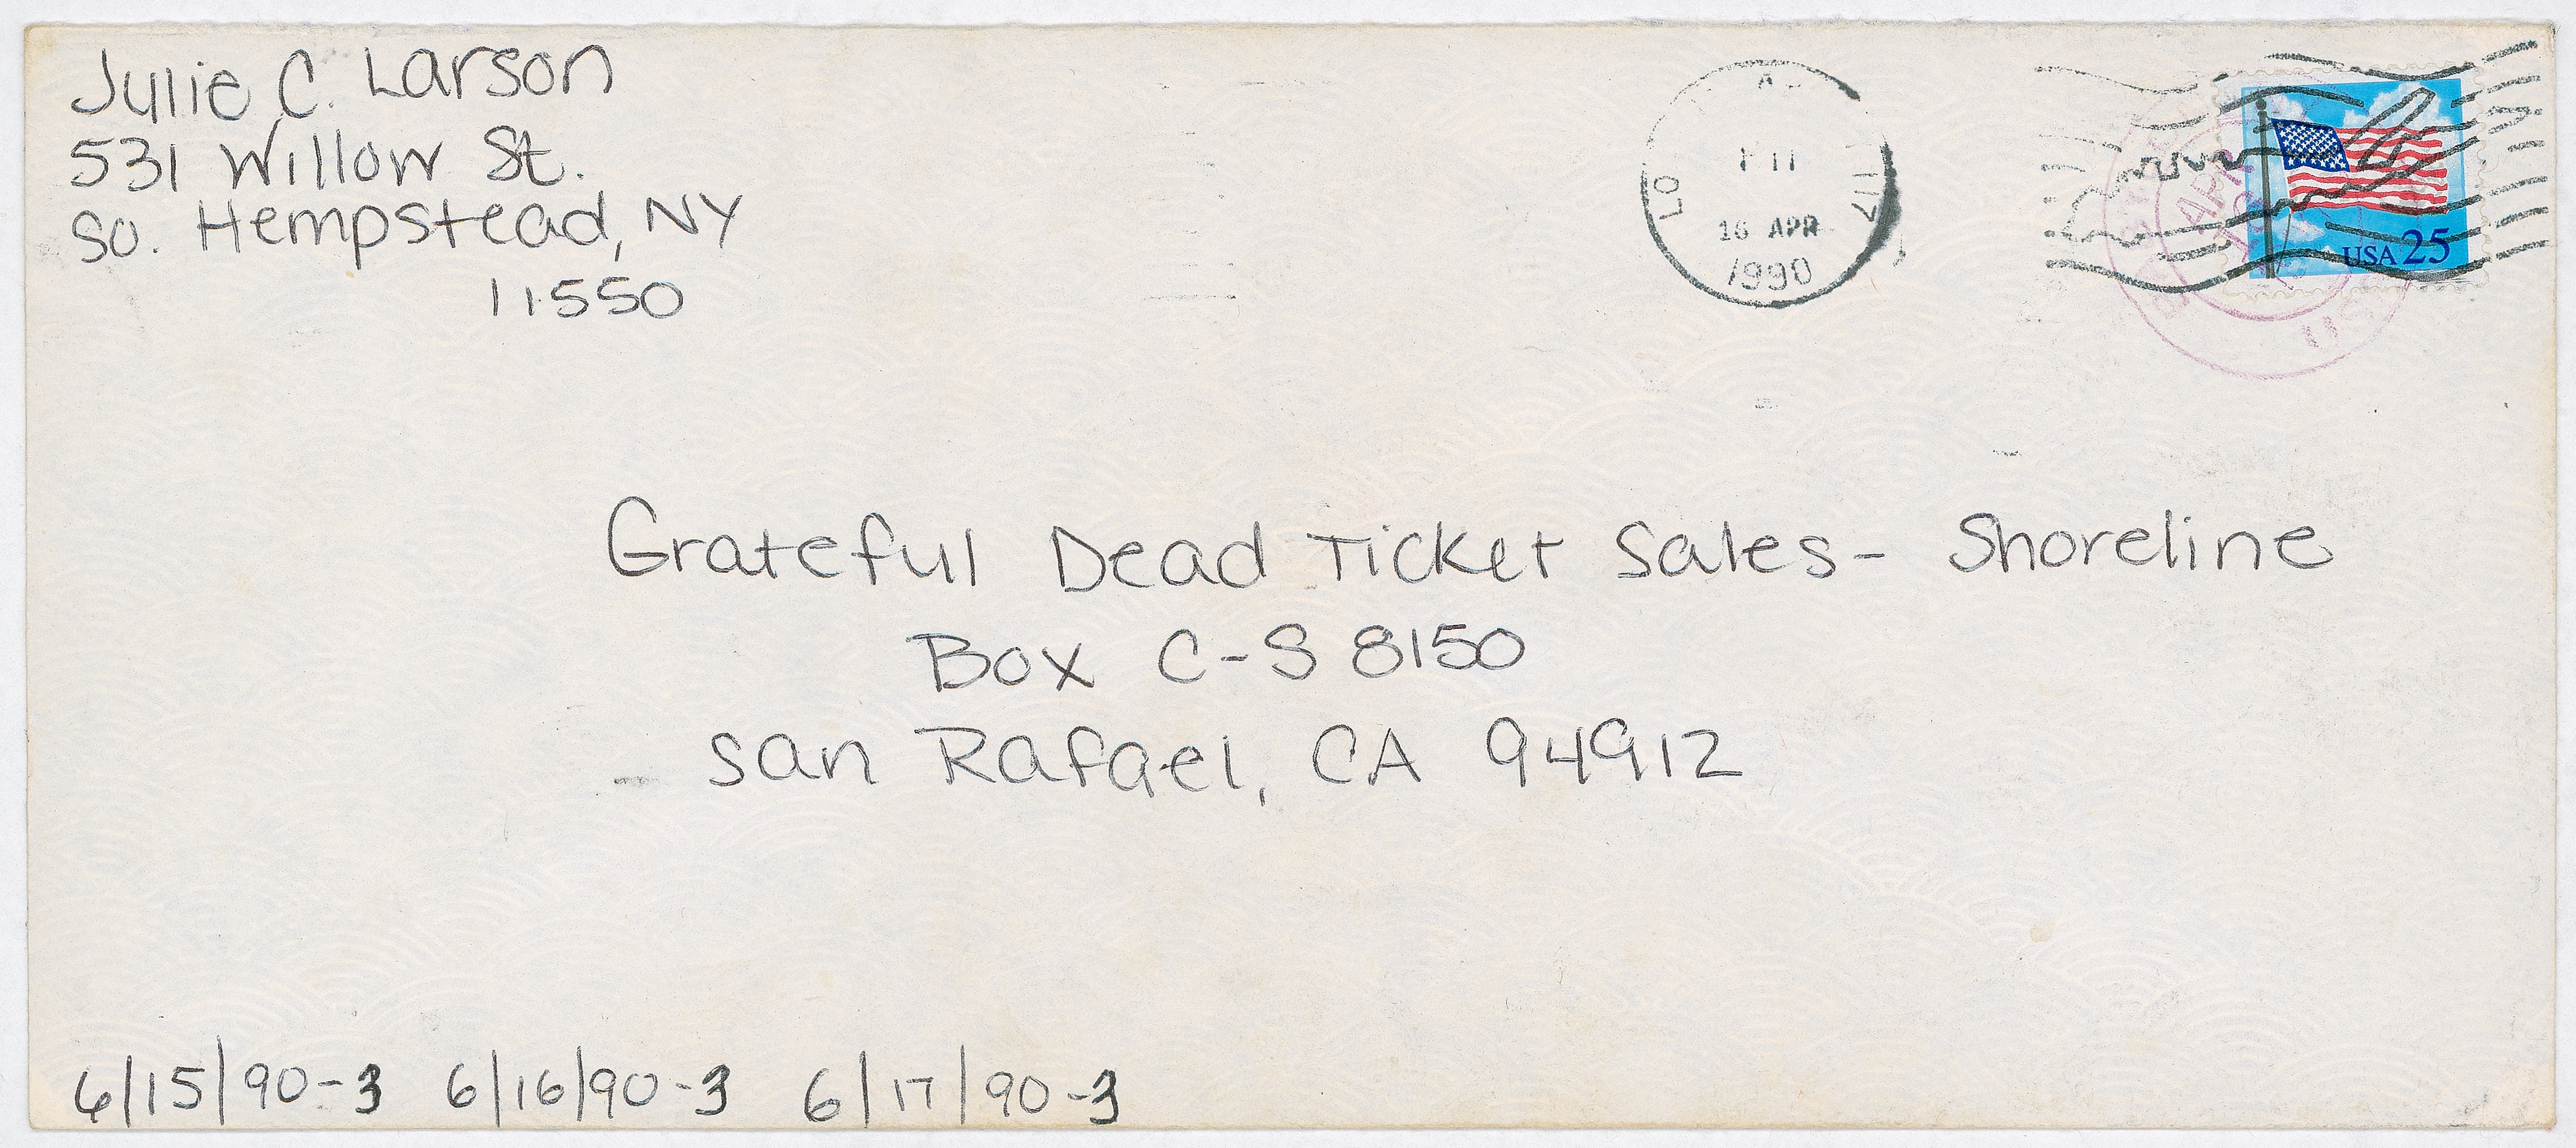 Julie C. Larson
531 Willow St.
So. Hempstead, NY
11550
PM
16 APR
1990
APR
USA 25
Grateful Dead Ticket Sales- Shoreline
Box C-S 8150
San Rafael, CA 94912
6/15/90-3 6/16/90-3 6/17/90-3